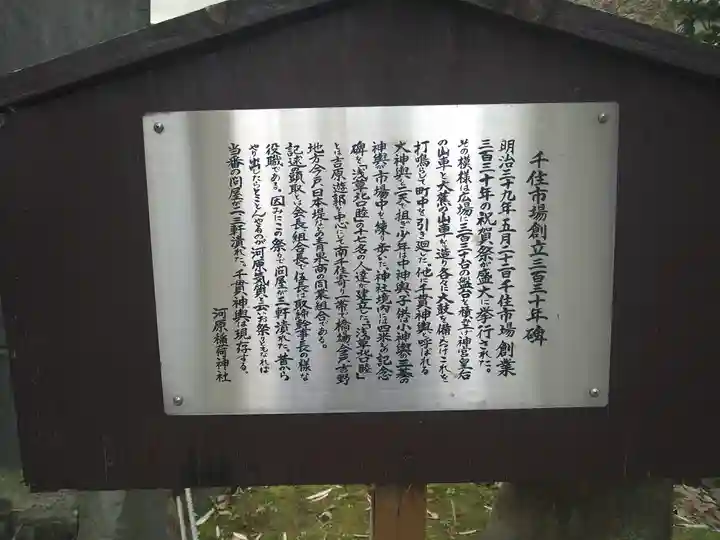 千住市場創立三百三十年碑
明治三十九年五月二十二日千住市場創業
三百三十年の祝賀祭が盛大に挙行された。
その模様は広場に三百三十台の盤台を積上げ神宮皇后
の山車と大蕪の山車を造り各々に大鼓を備えつけこれを
打鳴らして町中を引き廻した。他に千貫神輿と呼ばれる
大神輿を二天で担ぎ少年は中神輿子供は小神輿の三基の
神輿が市場中を練り歩いた。神社境内に四米余の記念
碑を「浅草北口睦」の十七名の人達が建立した。「浅草北口睦」
とは吉原遊郭を中心にして南千住寄り一帯で橋場今戸吉野
地方今戸日本堤などの青果商の同業組合である。
記述の頭取とは会長組合長で伍長は取締幹事長の様な
役職である。因みにこの祭りで問屋が三軒潰れた。昔から
やり出したらとことんやるのが河原気質と云われお祭ともなれば
当番の問屋が二、三軒潰れた。千貫神輿は現存する。
河原稲荷神社